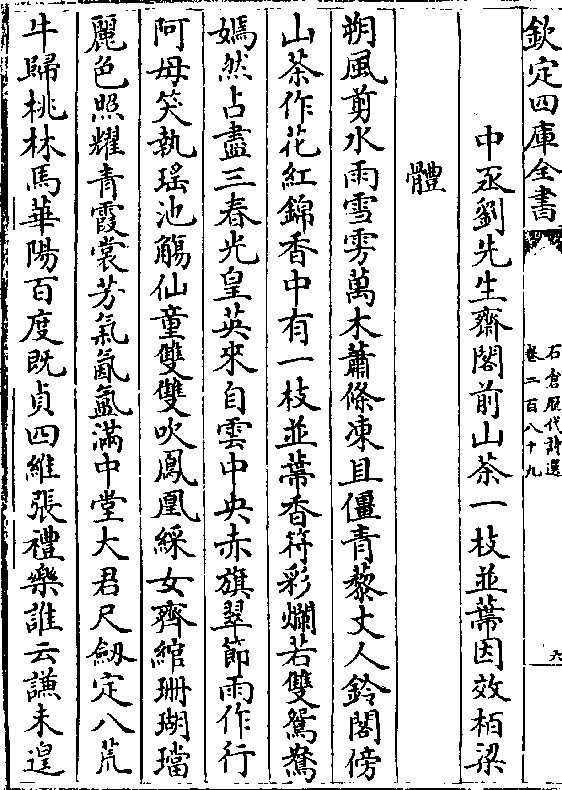 欽定四庫全書
石倉歷代詩選
卷二百八十九
六
中丞劉先生齋閣前山茶一枝並蔕因效栢梁
體
朔風剪水雨雪雱萬木蕭條凍且僵青藜丈人鈴閣傍
山茶作花紅錦香中有一枝並蔕香符彩爛若雙鴛鴦
嫣然占盡三春光皇英來自雲中央赤旗翠節雨作行
阿母笑執瑤池觴仙童雙雙吹鳳凰綵女齊綰珊瑚璫
麗色照耀青霞裳芳氣氤氳滿中堂大君尺劔定八荒
牛歸桃林馬華陽百度既貞四維張禮樂誰云謙未遑